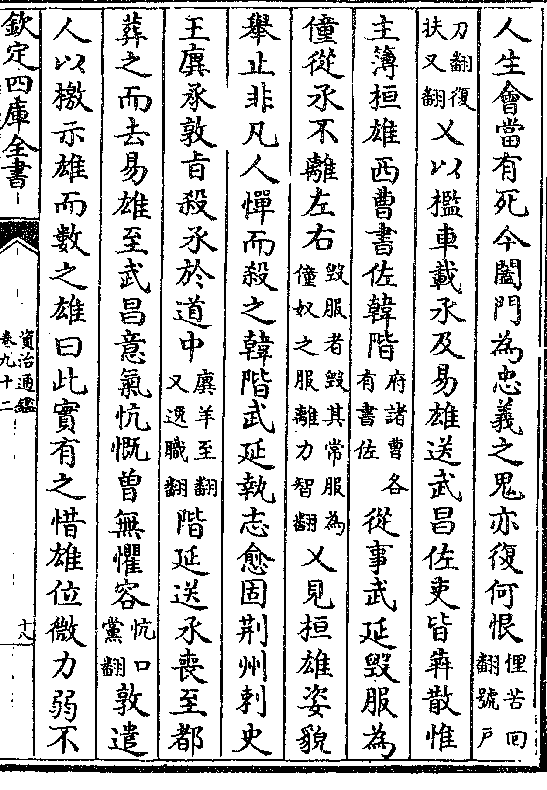 人生會當有死今闔門為忠義之鬼亦復何恨俚苦回翻號戶
刀翻復扶又翻乂以檻車載承及易雄送武昌佐吏皆犇散惟
主簿桓雄西曹書佐韓階府諸曹各有書佐從事武延毁服為
僮從承不離左右毁服者毁其常服為僮奴之服離力智翻乂見桓雄姿貌
舉止非凡人憚而殺之韓階武延執志愈固荆州刺史
王廙承敦旨殺承於道中廙羊至翻又逸職翻階延送承喪至都
葬之而去易雄至武昌意氣忼慨曾無懼容忼口黨翻敦遣
人以檄示雄而數之雄曰此實有之惜雄位微力弱不
欽定四庫全書
資治通鑑
卷九十二
十八